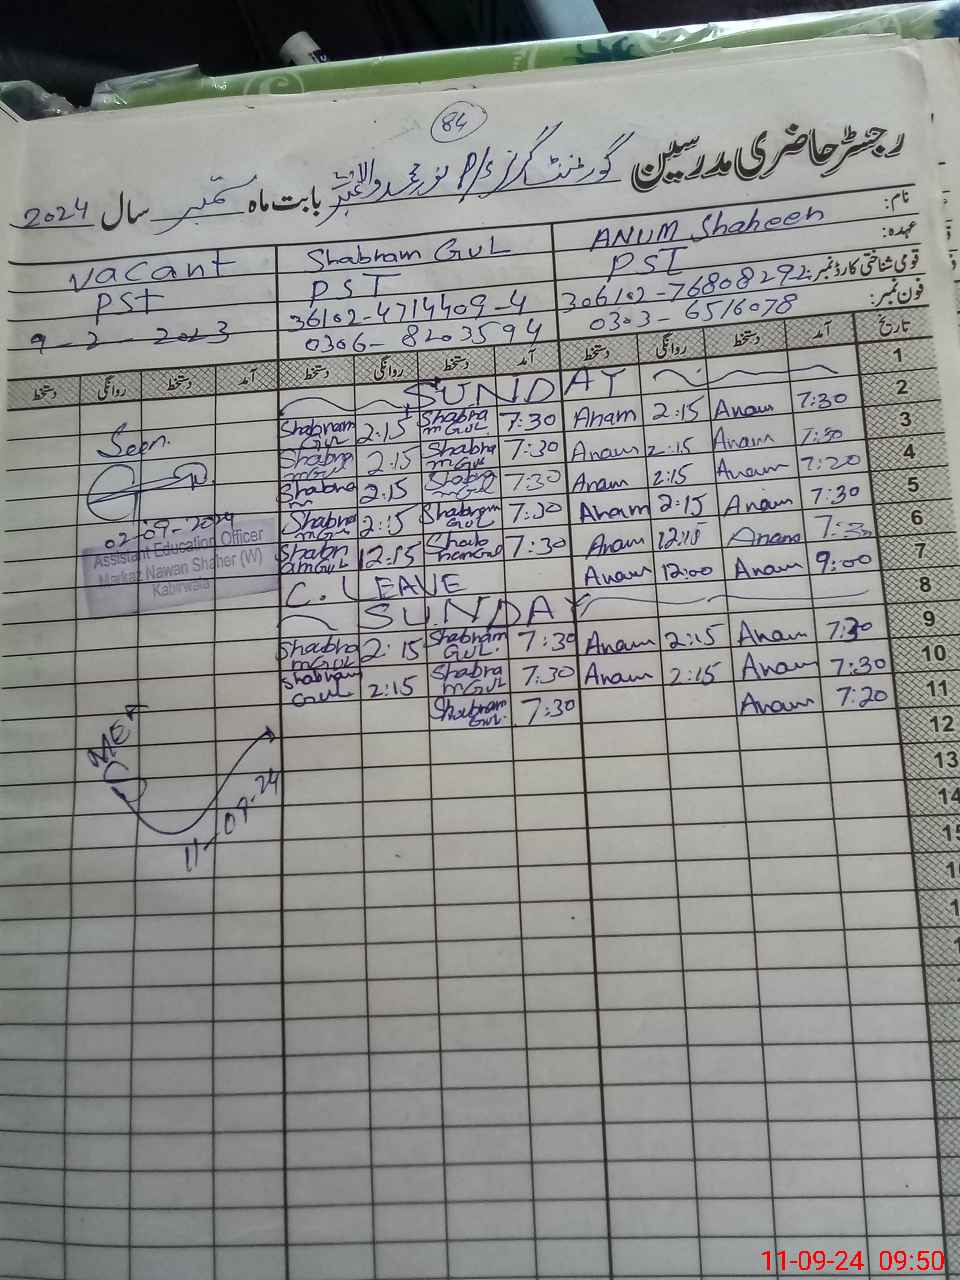 84
رجسٹر حاضری مدرسین گورنمنٹ گرلز P/S نور محمد والا بابت ماہ ستمبر سال 2024
نام: ANUM Shaheen Shabnam GUL Vacant
عہدہ: PST PST PST
قومی شناختی کارڈ نمبر: 36102-4714409-4
فون نمبر: 0303-6516078 0306-8203594 9-2-2023
تاریخ آمد دستخط روانگی دستخط آمد دستخط روانگی دستخط آمد دستخط روانگی دستخط
1 SUNDAY
2 7:30 Anam 2:15 Anam 7:30 Shabnam GUL 2:15 Shabnam GUL
3 7:30 Anam 2:15 Anam 7:30 Shabnam GUL 2:15 Shabnam GUL
4 7:20 Anam 2:15 Anam 7:30 Shabnam GUL 2:15 Shabnam
5 7:30 Anam 2:15 Anam 7:30 Shabnam GUL 2:15 Shabnam GUL
6 7:30 Anam 12:15 Anam 7:30 Shabnam GUL 12:15 Shabnam GUL
7 9:00 Anam 12:00 Anam C. LEAVE
8 SUNDAY
9 7:30 Anam 2:15 Anam 7:30 Shabnam GUL 2:15 Shabnam GUL
10 7:30 Anam 2:15 Anam 7:30 Shabnam GUL 2:15 Shabnam GUL
11 7:20 Anam 7:30 Shabnam GUL
12
13
14
15
Seen.
02-09-2024
Assistant Education Officer
Markaz Nawan Shaher (W)
Kabirwala
11-09-24
11-09-24 09:50